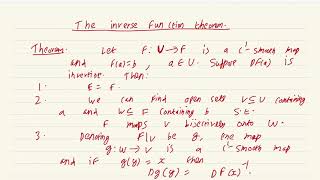 The inverse function theorem.
Theorem: Let f: U → F is a C¹-smooth map
and f(a)=b, a ∈ U. Suppose Df(a) is
invertive. Then:
1. E = F.
2. We can find open sets V⊆U containing
a and W⊆F containing b S.t.
f maps V bijectively onto W.
3. Denoting F|V by g, one map
g: W→V is a C¹-smooth map
and if g(y) = x then
Dg(y) = DF(x)⁻¹